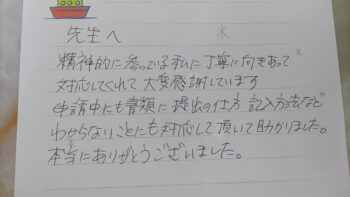 先生へ
精神的に参っている私に丁寧に向きあって
対応してくれて大変感謝しています
申請中にも書類に提出の仕方、記入方法など
わからないことにも対応して頂いて助かりました。
本当にありがとうございました。